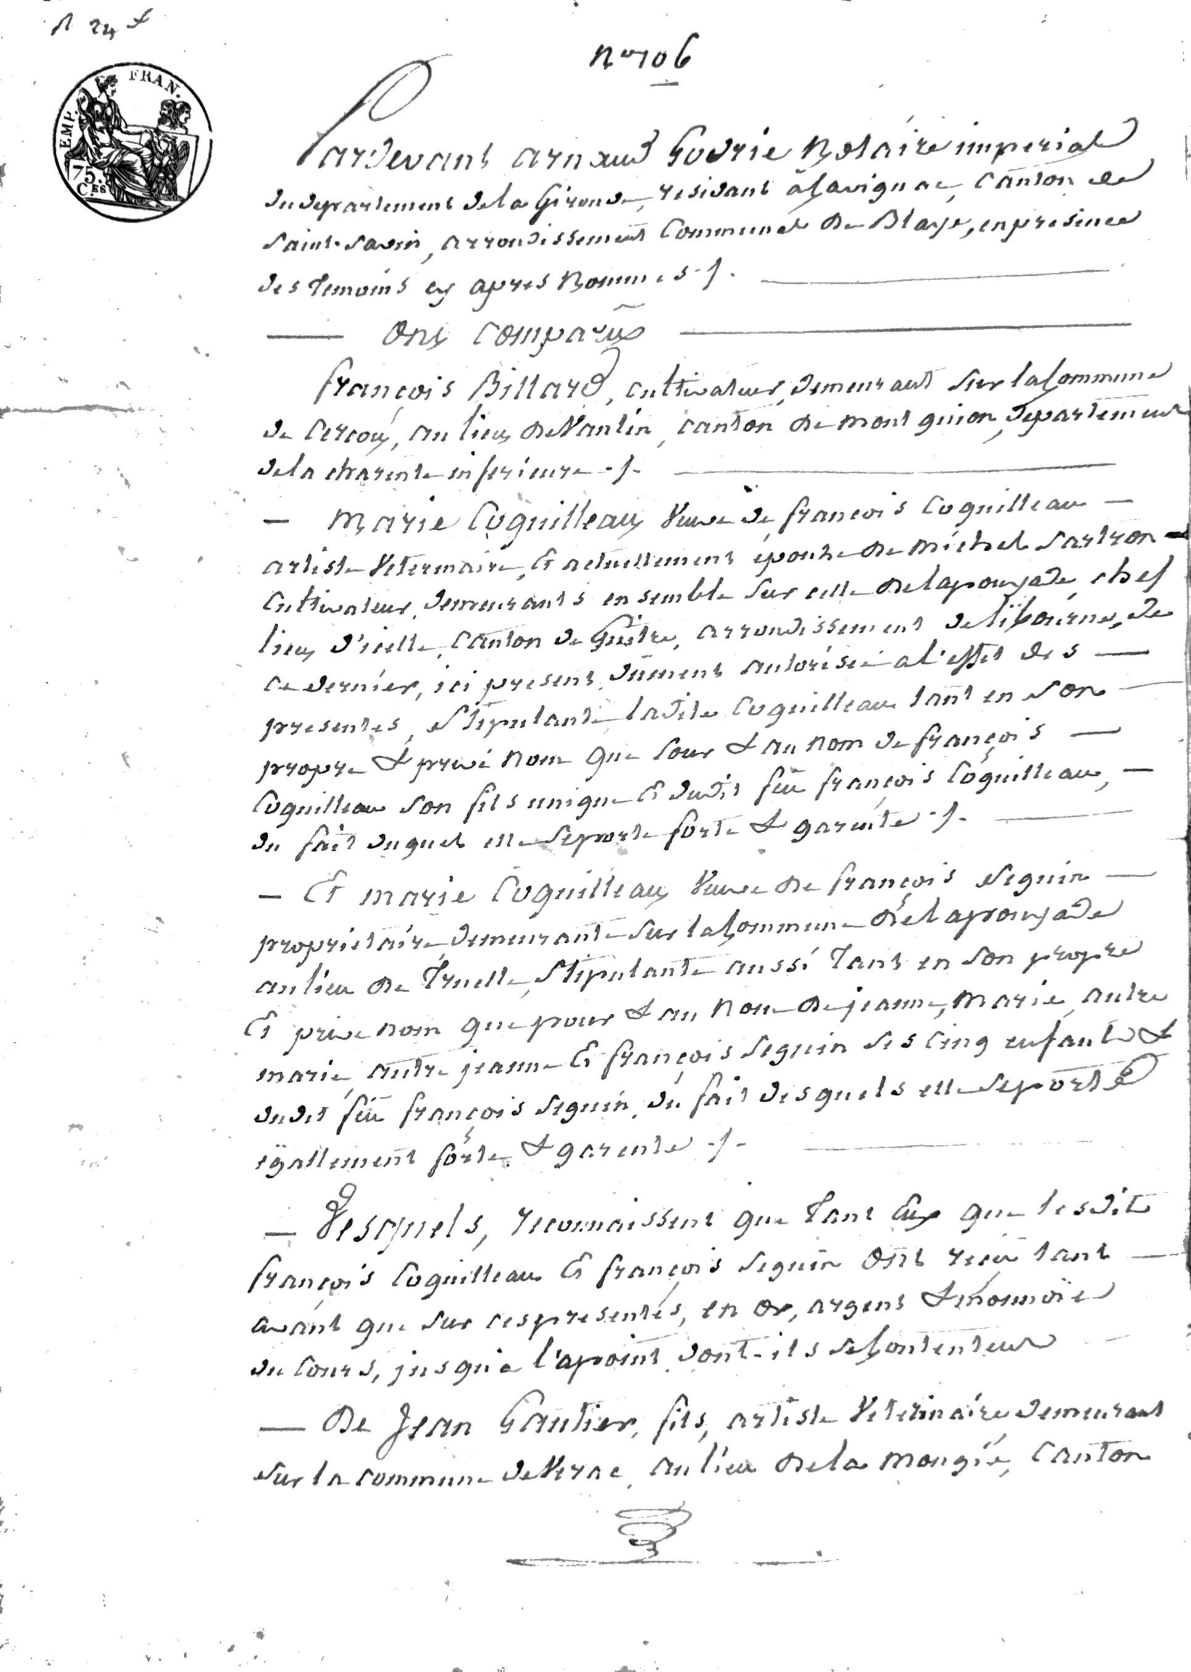 R 24 f
EMP. FRAN.
75. C.ES
N° 706
Pardevant arnaud Godrie Notaire imperial
du departement de la Gironde, residant à Lavignac, Canton de
Saint-Savin, arrondissement Communal de Blaye, en presence
des temoins cy apres Nommes ./.
Ont Comparûs
françois Billard, cultivateur, demeurant sur la Commune
de Cercoux, au lieu de Nantin, canton de mont guion, departement
de la charente inferieure ./.
— Marie Coquilleau Veuve de françois Coquilleau —
artiste Veterinaire, Et actuellement épouse de Michel Sartron —
Cultivateur, demeurants ensemble sur celle de lapouyade, chef
lieu d'icelle, Canton de Guitre, arrondissement de libourne, de
ce dernier, ici present dûment autorisée a l'effet des —
presentes, Stipulante ladite Coquilleau tant en Son —
propre & privé nom que pour & au nom de françois —
Coquilleau son fils unique Et dudit feu françois Coquilleau, —
du fait duquel elle Seporte forte & garente ./.
— Et marie Coquilleau Veuve de françois Seguin —
proprietaire demeurante sur la Commune de lapouyade
au lieu de Truelle, Stipulante aussi Tant en Son propre
Et privé nom que pour & au Nom de jeanne, Marie, autre
marie, autre jeanne Et françois Seguin ses Cinq enfants &
dudit feu françois Seguin, du fait desquels elle Seporte
égallement forte & garente ./.
— Lesquels, reconnaissent que Tant Eux que lesdits
françois Coquilleau Et françois Seguin Ont reçu tant —
avant que sur ces presentes, en or, argent & monnoie
du Cours, jusqu'a l'apoint dont-ils se Contentent
— De Jean Gautier, fils, artiste Veterinaire demeurant
sur la commune de Verac, au lieu de la Mongie, Canton